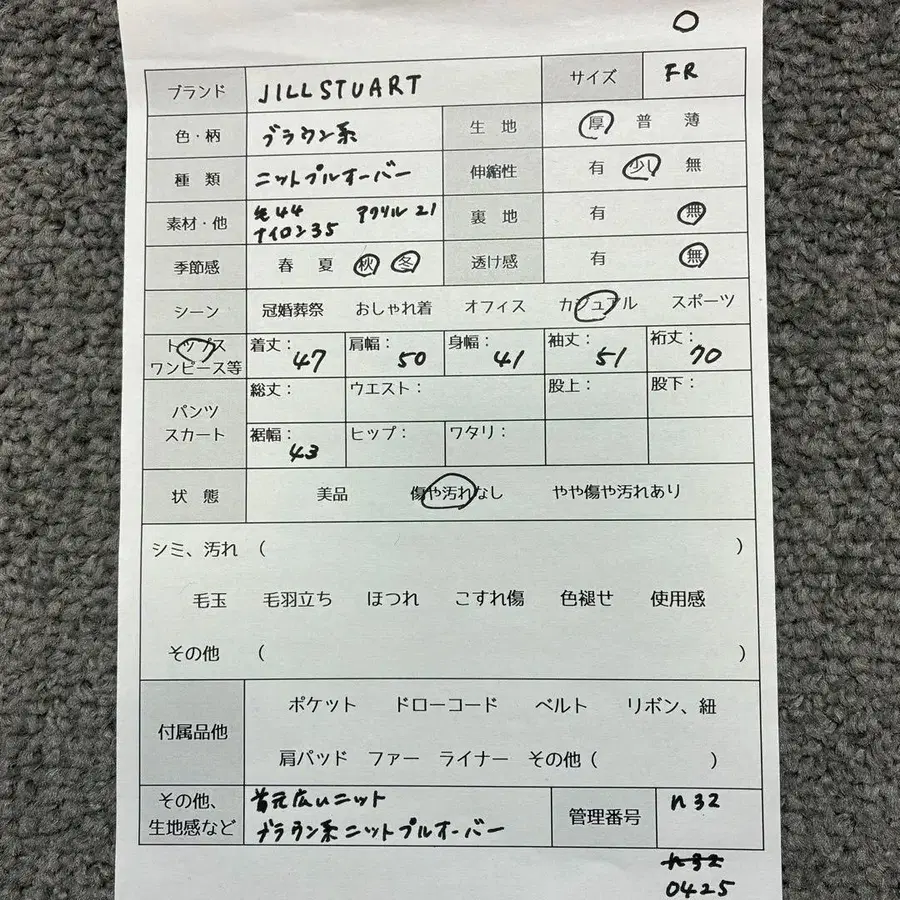 ブランド JILLSTUART サイズ FR
色・柄 ブラウン系 生地 厚 普 薄
種類 ニットプルオーバー 伸縮性 有 少し 無
素材・他 毛44 アクリル21
ナイロン35 裏地 有 無
季節感 春 夏 秋 冬 透け感 有 無
シーン 冠婚葬祭 おしゃれ着 オフィス カジュアル スポーツ
トップス
ワンピース等 着丈:47 肩幅:50 身幅:41 袖丈:51 裄丈:70
パンツ
スカート 総丈: ウエスト: 股上: 股下:
裾幅:43 ヒップ: ワタリ:
状態 美品 傷や汚れなし やや傷や汚れあり
シミ、汚れ ( )
毛玉 毛羽立ち ほつれ こすれ傷 色褪せ 使用感
その他 ( )
付属品他 ポケット ドローコード ベルト リボン、紐
肩パッド ファー ライナー その他 ( )
その他、
生地感など 首元広いニット
ブラウン系ニットプルオーバー 管理番号 n32
n32
0425